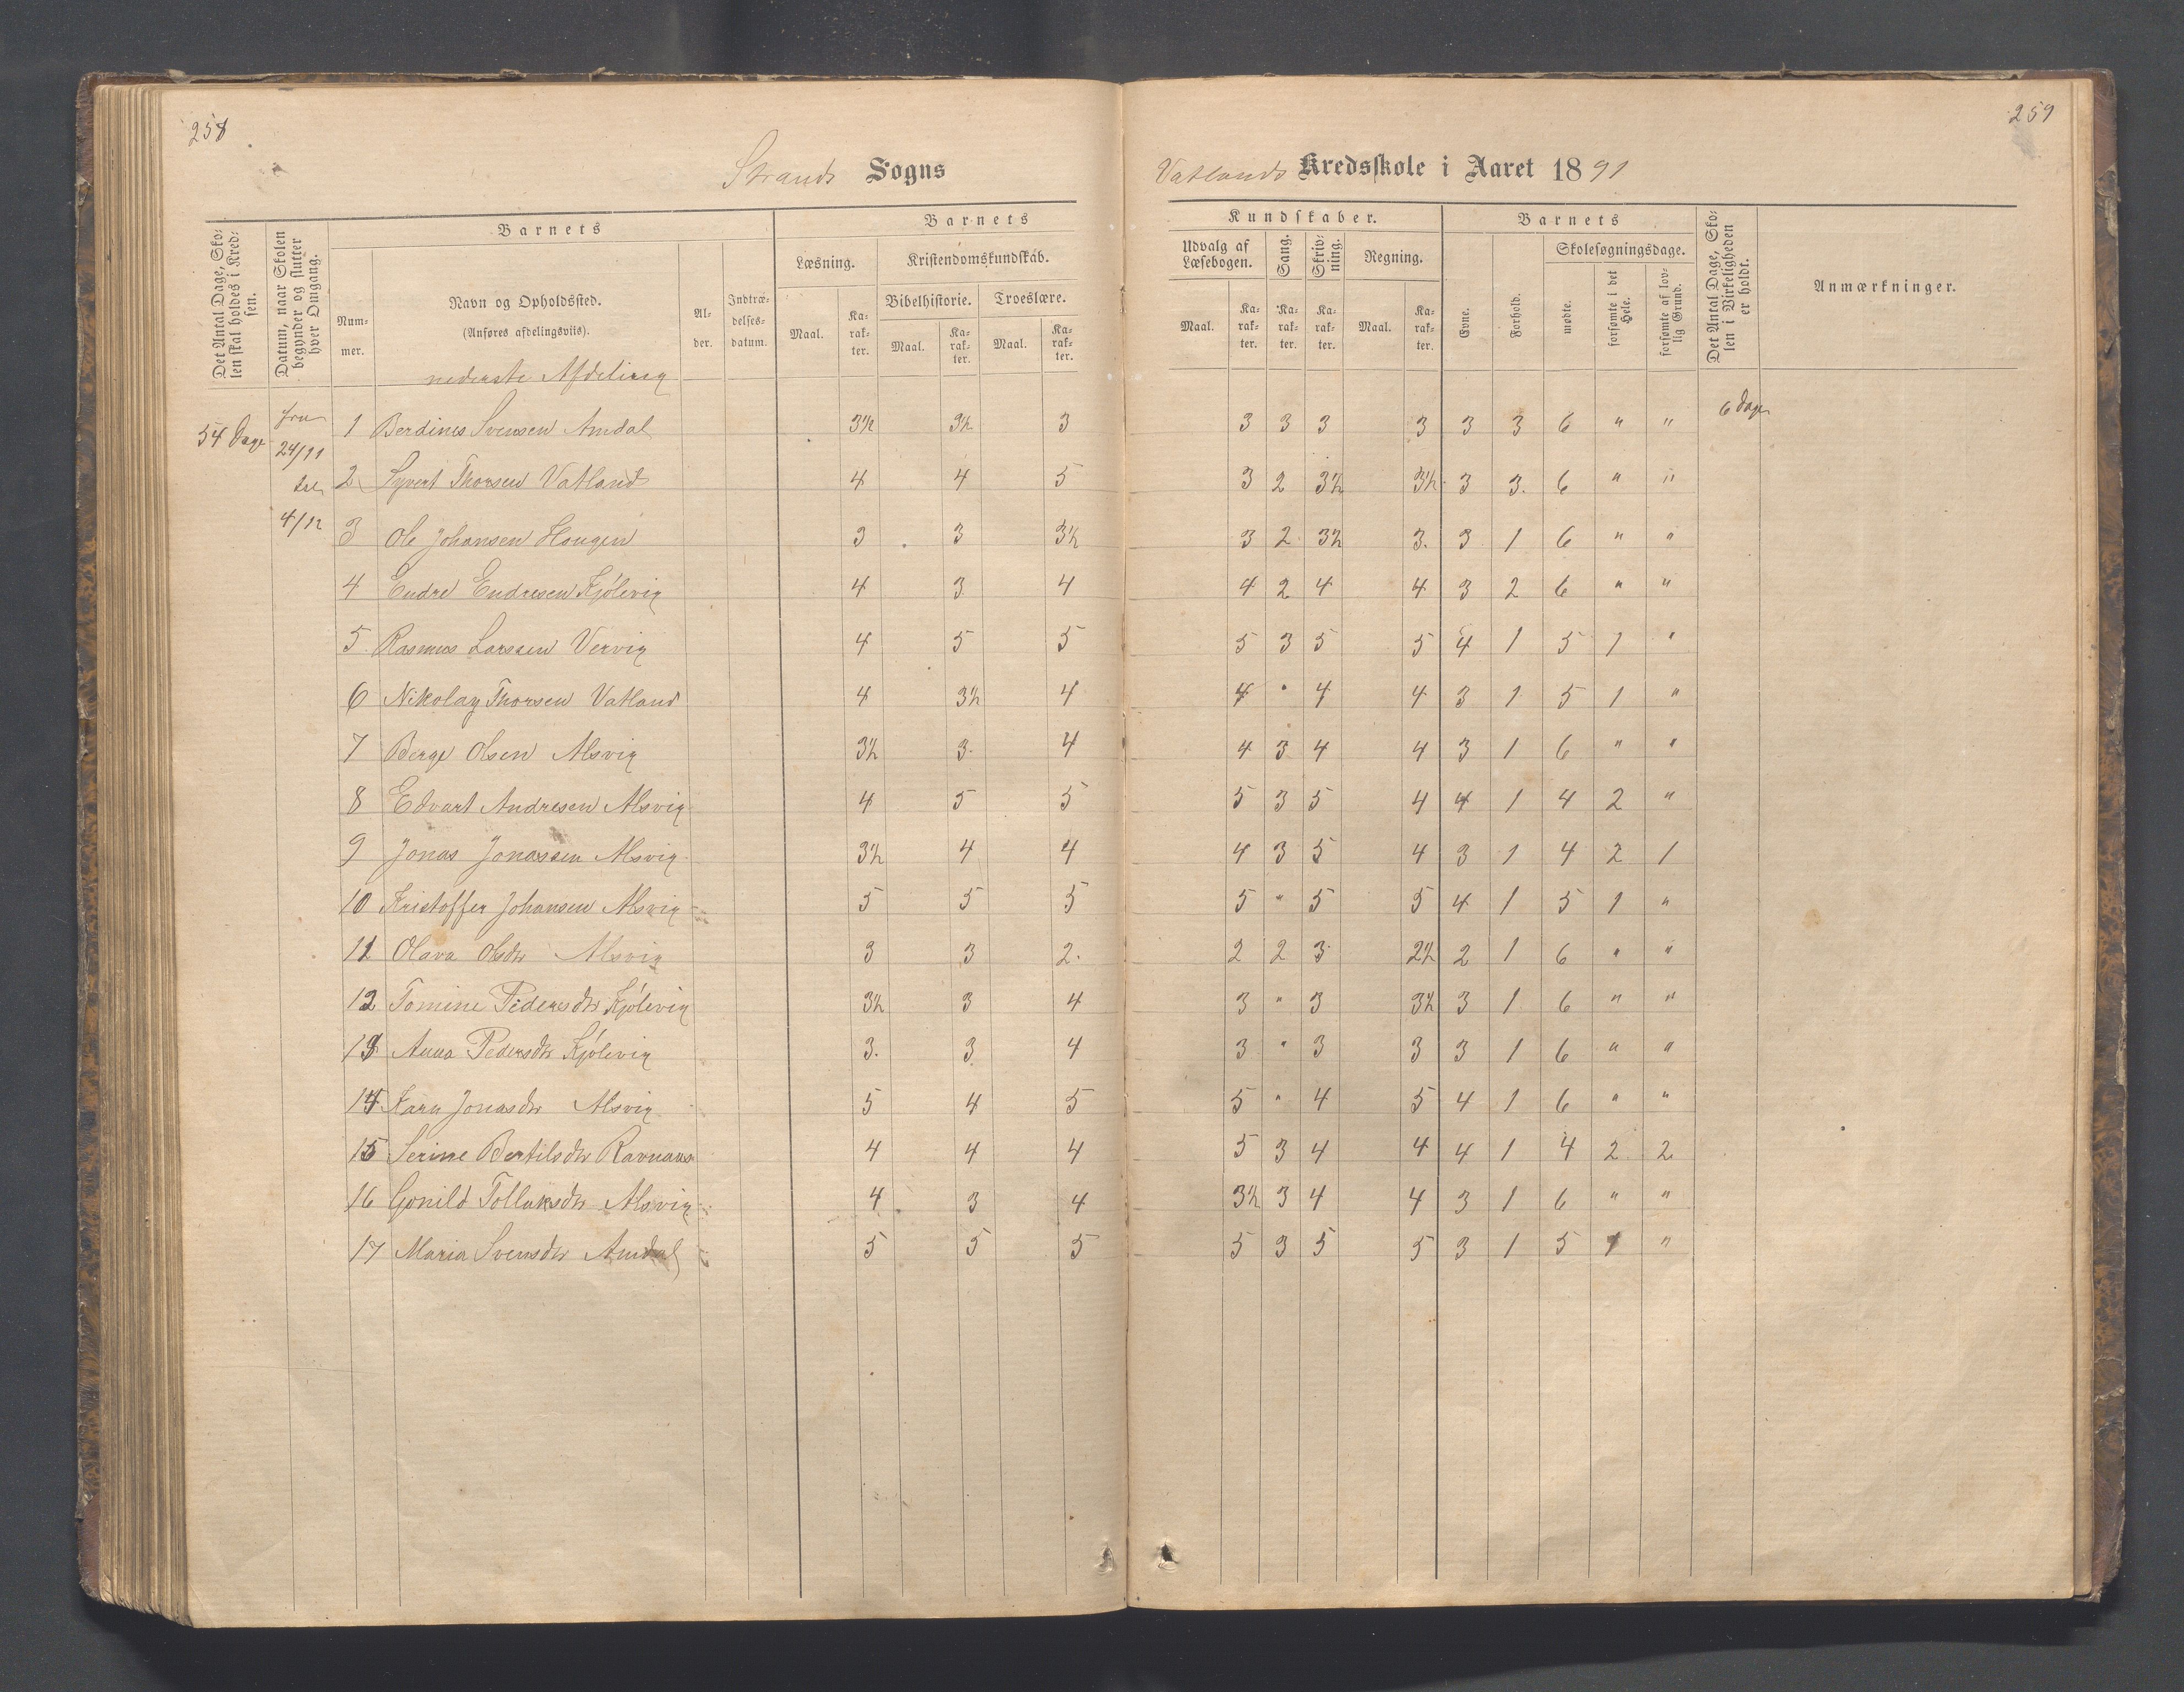 258
259
Strands Sogns
Vatlands Kredsskole i Aaret 1891
Det Antal Dage, Skolen skal holdes i Kredsen.
Datum, naar Skolen begynder og slutter hver Omgang.
Barnets
Nummer.
Navn og Opholdssted.
(Anføres afdelingsviis).
Alder.
Indtrædelsesdatum.
Barnets
Læsning.
Kristendomskundskab.
Bibelhistorie. Troeslære.
Maal. Karakter. Maal. Karakter. Maal. Karakter.
Kundskaber.
Udvalg af Læsebogen. Sang. Skrivning. Regning.
Maal. Karakter. Karakter. Karakter. Maal. Karakter.
Barnets
Evne. Forhold.
Skolesøgningsdage.
mødte. forsømte i det Hele. forsømte af lovlig Grund.
Det Antal Dage, Skolen i Virkeligheden er holdt.
Anmærkninger.
nederste Afdeling
54 Dage fra 24/11 til 4/12
1 Berdines Svensen Amdal 3½ 3½ 3 3 3 3 3 3 3 6 " " 6 Dage
2 Syvert Thorsen Vatland 4 4 5 3 2 3½ 3½ 3 3. 6 " "
3 Ole Johansen Haugen 3 3 3½ 3 2 3½ 3. 3 1 6 " "
4 Endre Endresen Kjölevig 4 3 4 4 2 4 4 3 2 6 " "
5 Rasmus Larssen Vervig 4 5 5 5 3 5 5 4 1 5 1 "
6 Nikolay Thorsen Vatland 4 3½ 4 4 " 4 4 3 1 5 1 "
7 Berge Olsen Alsvig 3½ 3 4 4 3 4 4 3 1 6 " "
8 Edvart Andresen Alsvig 4 5 5 5 3 5 4 4 1 4 2 "
9 Jonas Jonassen Alsvig 3½ 4 4 4 3 5 4 3 1 4 2 1
10 Kristoffer Johansen Alsvig 5 5 5 5 " 5 5 4 1 5 1 "
11 Olava Olsdtr Alsvig 3 3 2. 2 2 3 2½ 2 1 6 " "
12 Tomine Pedersdtr Kjölevig 3½ 3 4 3 " 3 3½ 3 1 6 " "
13 Anna Pedersdtr Kjölevig 3. 3 4 3 " 3 3 3 1 6 " "
14 Karn Jonasdtr Alsvig 5 4 5 5 " 4 5 4 1 6 " "
15 Serine Bertilsdtr Ravnaas 4 4 4 5 3 4 4 4 1 4 2 2
16 Gonild Tollaksdtr Alsvig 4 3 4 3½ 3 4 4 3 1 6 " "
17 Maria Svensdtr Amdal 5 5 5 5 3 5 5 3 1 5 1 "